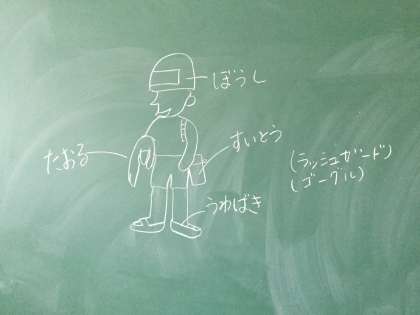 ぼうし
すいとう
たおる
(ラッシュガード)
(ゴーグル)
うわばき